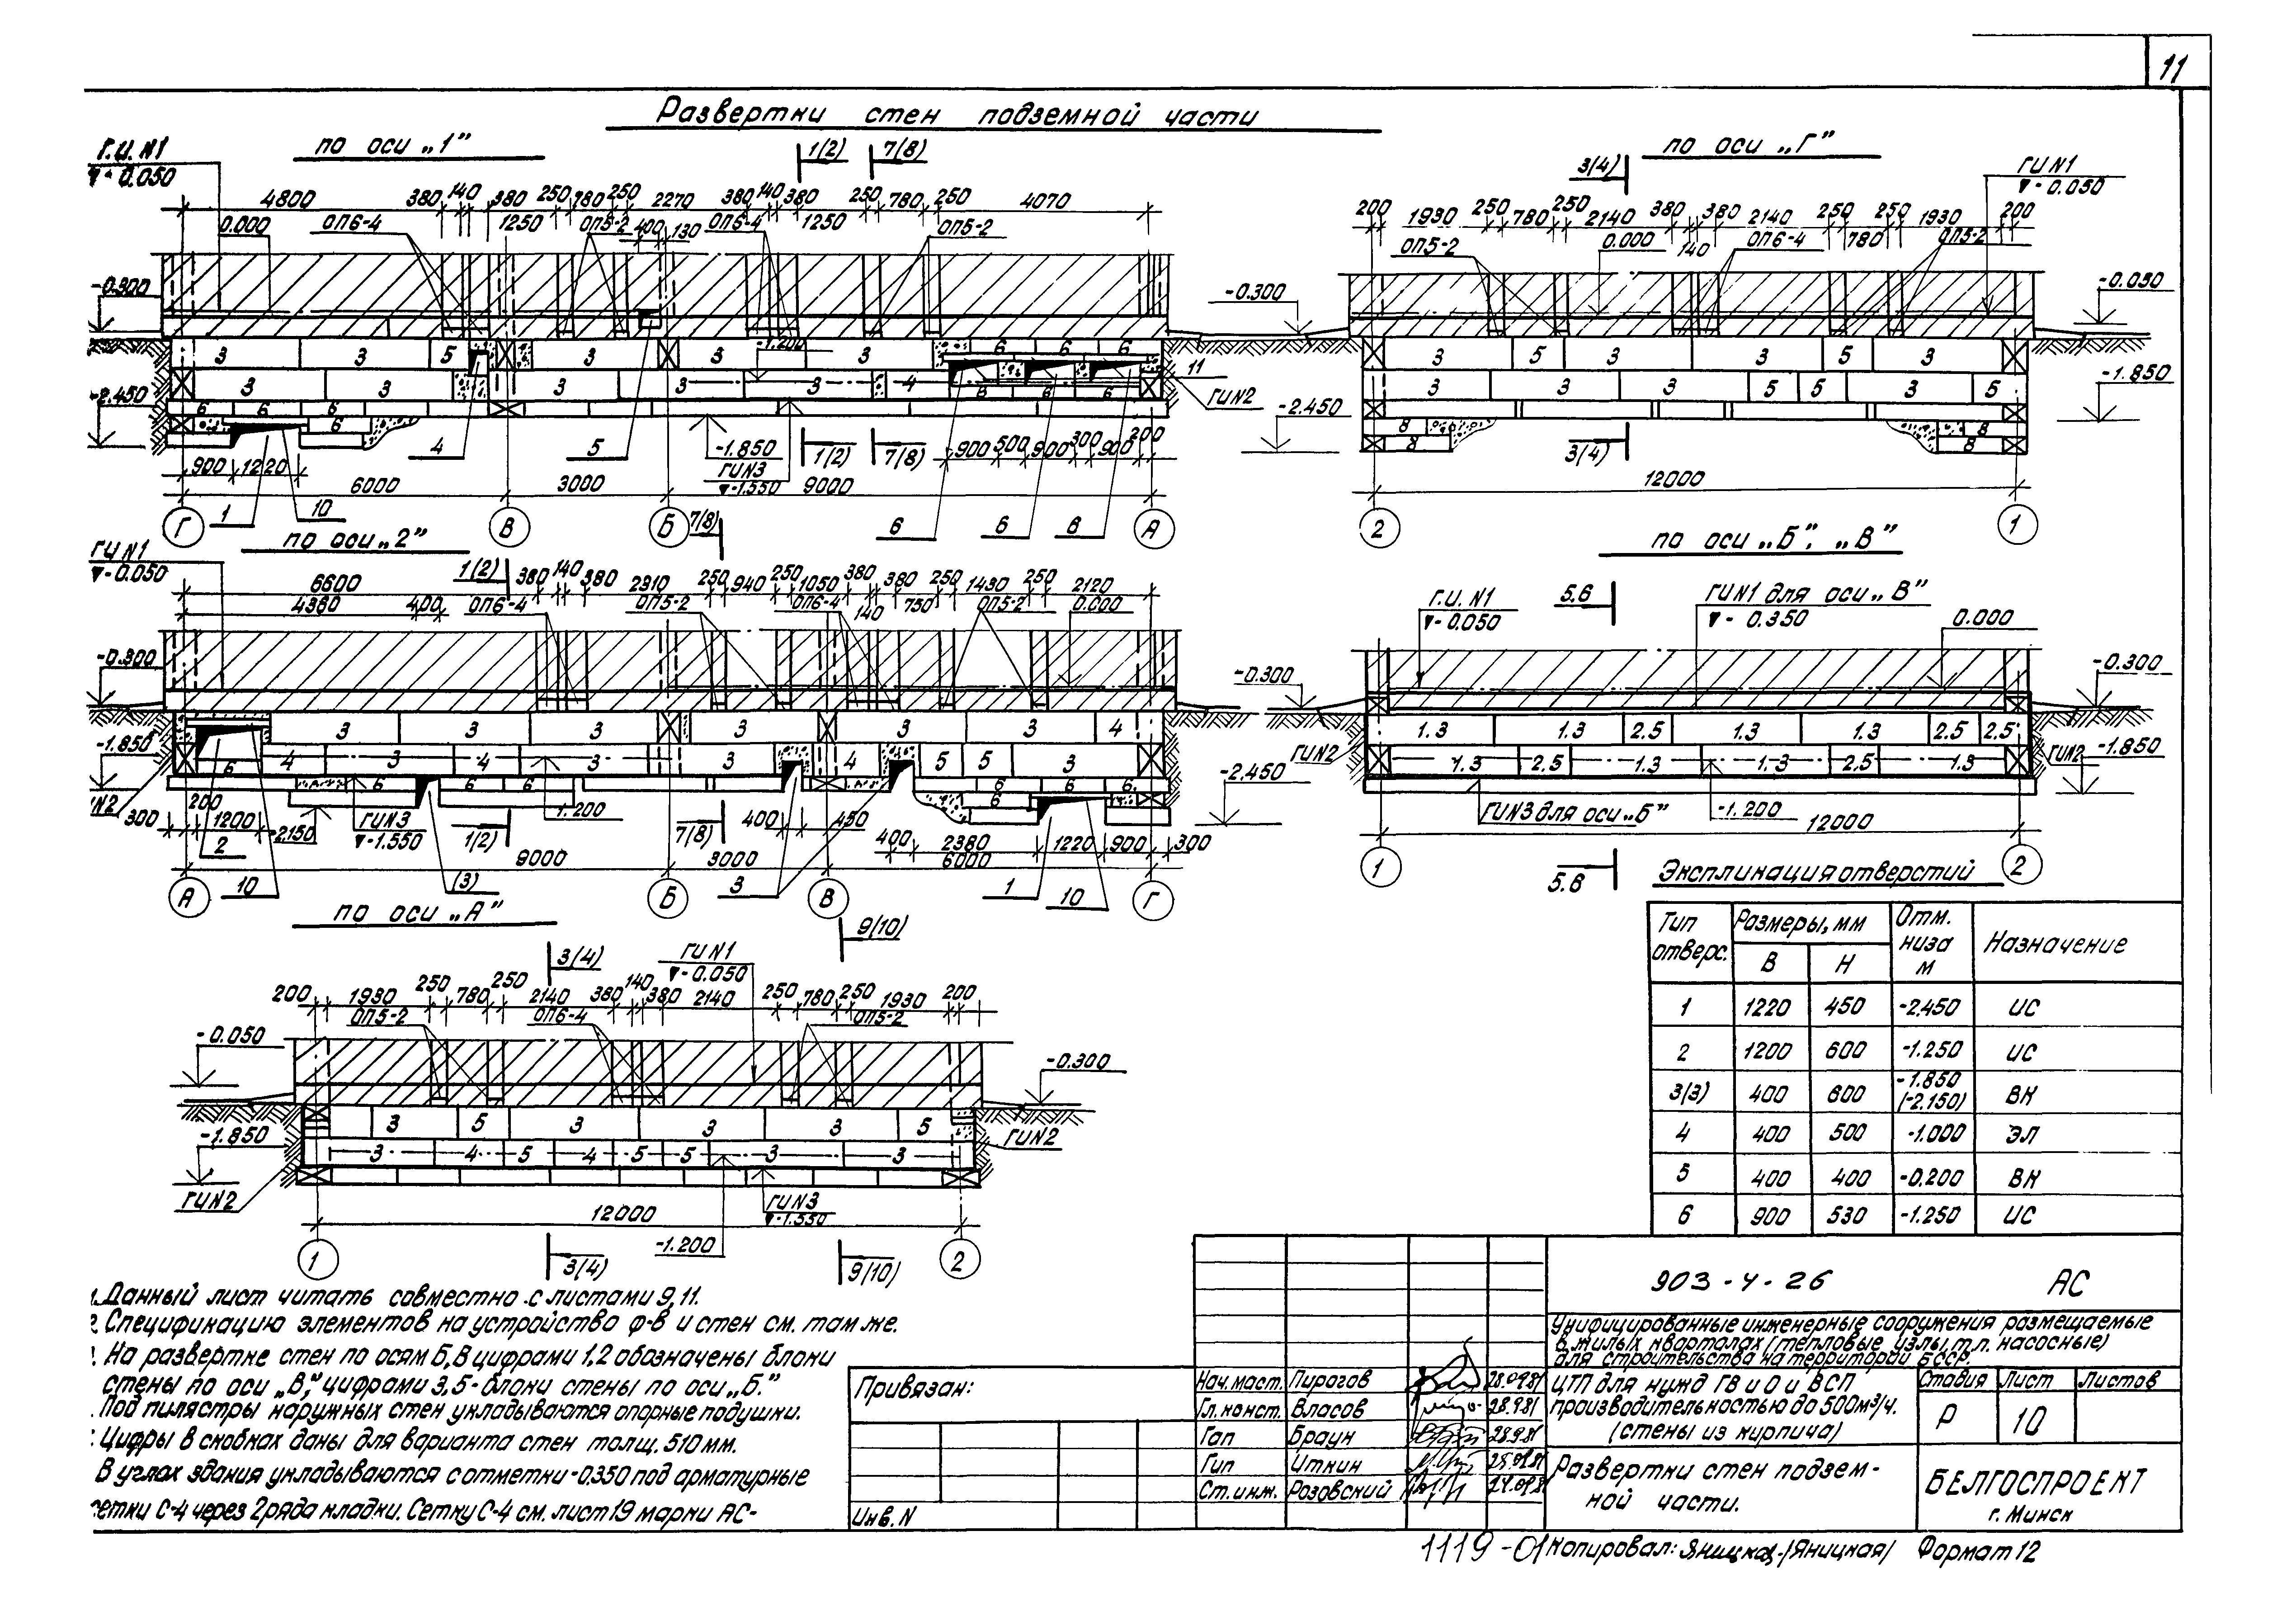 11
Развертки стен подземной части
по оси „1"
Г.И. №1
▼-0.050
1(2) 7(8)
4800 380 140 380 250 780 250 2270 380 140 380 250 780 250 4070
0.000 ОП6-4 1250 ОП5-2 400 ОП6-4 130 1250 ОП5-2
-0.300
-0.300
3 3 5 3 3 -1.200 3 6 6 6
3 3 3 3 3 4 11
-2.450 6 6 6 6 ГИ №2
4 5 -1.850 1(2) 7(8) 900 500 900 300 900 200
900 1220 ГИ №3
▼-1.550
6000 3000 9000
1 10 6 6 6
Г В Б А
по оси „Г"
3(4) ГИ №1
▼-0.050
200 1930 250 780 250 2140 380 380 2140 250 250 1930 200
ОП5-2 0.000 140 ОП6-4 780 ОП5-2
-0.050
3 5 3 3 5 3
3 3 3 5 5 3 5
-1.850
-2.450
8 8
8 8
3(4)
12000
2 1
по оси „2"
7(8)
ГИ №1
▼-0.050
1(2)
6600 380 140 380 2310 250 940 250 1050 380 380 250 1430 250 2120
4380 400 ОП6-4 ОП5-2 ОП6-4 140 750 ОП5-2 0.000
-0.300
-0.300
3 3 3 3 3 3 4
-1.850
4 3 4 3 3 4 5 5 3
6 6 6 6 6 6 6 6
-2.450
200
300 1200 -2.150 ГИ №3 1(2) -1.200 7(8) 400 450
2 ▼-1.550
400 2380 1220 900 300
9000 3000 6000
10 (3) 3 1 10
А Б В Г
по оси „Б", „В"
Г.И. №1
▼-0.050
5.6
ГИ №1 для оси „В"
▼-0.350
0.000
-0.300
1.3 1.3 2.5 1.3 1.3 2.5 2.5
ГИ №2 ГИ №2 -1.850
1.3 2.5 1.3 1.3 2.5 1.3
ГИ №3 для оси „Б" -1.200
12000
1 5.6 2
по оси „А"
9(10)
3(4) ГИ №1
▼-0.050
200 1930 250 780 250 2140 380 140 380 2140 250 780 250 1930 200
ОП5-2 ОП6-4 ОП5-2
-0.050
-0.300
3 5 3 3 3 5
-1.850
3 4 5 4 5 5 3 3
ГИ №2
ГИ №2
ГИ №3
▼-1.550
12000
-1.200
1 3(4) 9(10) 2
Экспликация отверстий
Тип отверс. Размеры, мм Отм. низа м Назначение
В Н
1 1220 450 -2.450 ИС
2 1200 600 -1.250 ИС
3(3) 400 600 -1.850 (-2.150) ВК
4 400 500 -1.000 ЭЛ
5 400 400 -0.200 ВК
6 900 530 -1.250 ИС
Данный лист читать совместно с листами 9, 11.
Спецификацию элементов на устройство ф-в и стен см. там же.
На развертке стен по осям Б, В цифрами 1,2 обозначены блоки
стены по оси „В," цифрами 3,5 - блоки стены по оси „Б."
Под пилястры наружных стен укладываются опорные подушки.
Цифры в скобках даны для варианта стен толщ. 510 мм.
В углах здания укладываются с отметки -0.350 под арматурные
сетки С-4 через 2 ряда кладки. Сетку С-4 см. лист 19 марки АС-
Привязан:
Инв. №
Нач. маст. Пирагов 28.09.81
Гл. конст. Власов 28.9.81
Гап Браун 28.9.81
Гип Иткин 25.09.81
Ст. инж. Розовский 24.09.81
903-4-26 АС
Унифицированные инженерные сооружения размещаемые
в жилых кварталах (тепловые узлы, т.п. насосные)
для строительства на территории БССР.
ЦТП для нужд ГВ и О и ВСП
производительностью до 500 м³/ч.
(стены из кирпича)
Стадия Лист Листов
Р 10
Развертки стен подзем-
ной части.
БЕЛГОСПРОЕКТ
г. Минск
1119-01 Копировал: Яницкая /Яницкая/ Формат 12